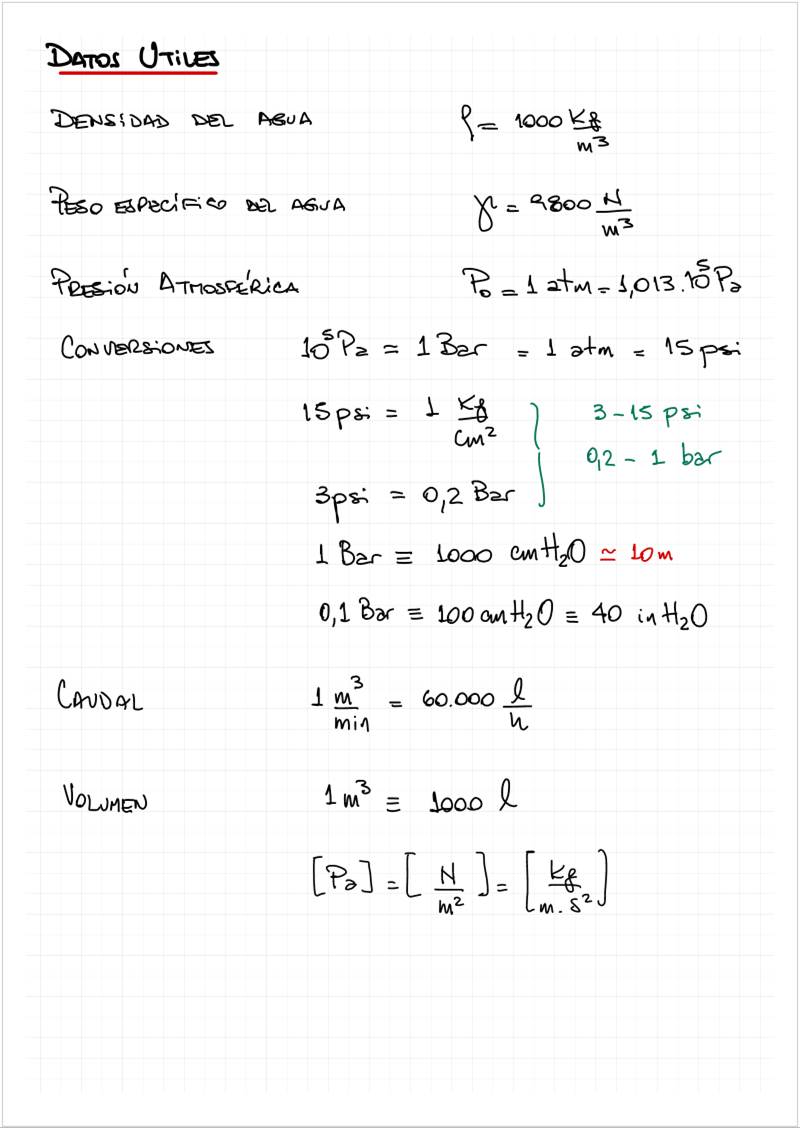 DATOS UTILES
DENSIDAD DEL AGUA ρ = 1000 Kg/m³
PESO ESPECÍFICO DEL AGUA γ = 9800 N/m³
PRESIÓN ATMOSFÉRICA P₀ = 1 atm = 1,013.10⁵ Pa
CONVERSIONES 10⁵ Pa = 1 Bar = 1 atm = 15 psi
15 psi = 1 Kg/cm² 3 - 15 psi
0,2 - 1 bar
3 psi = 0,2 Bar
1 Bar ≡ 1000 cmH₂O ≃ 10 m
0,1 Bar ≡ 100 cmH₂O ≡ 40 inH₂O
CAUDAL 1 m³/min = 60.000 l/h
VOLUMEN 1 m³ ≡ 1000 l
[Pa] = [N/m²] = [Kg/m.s²]